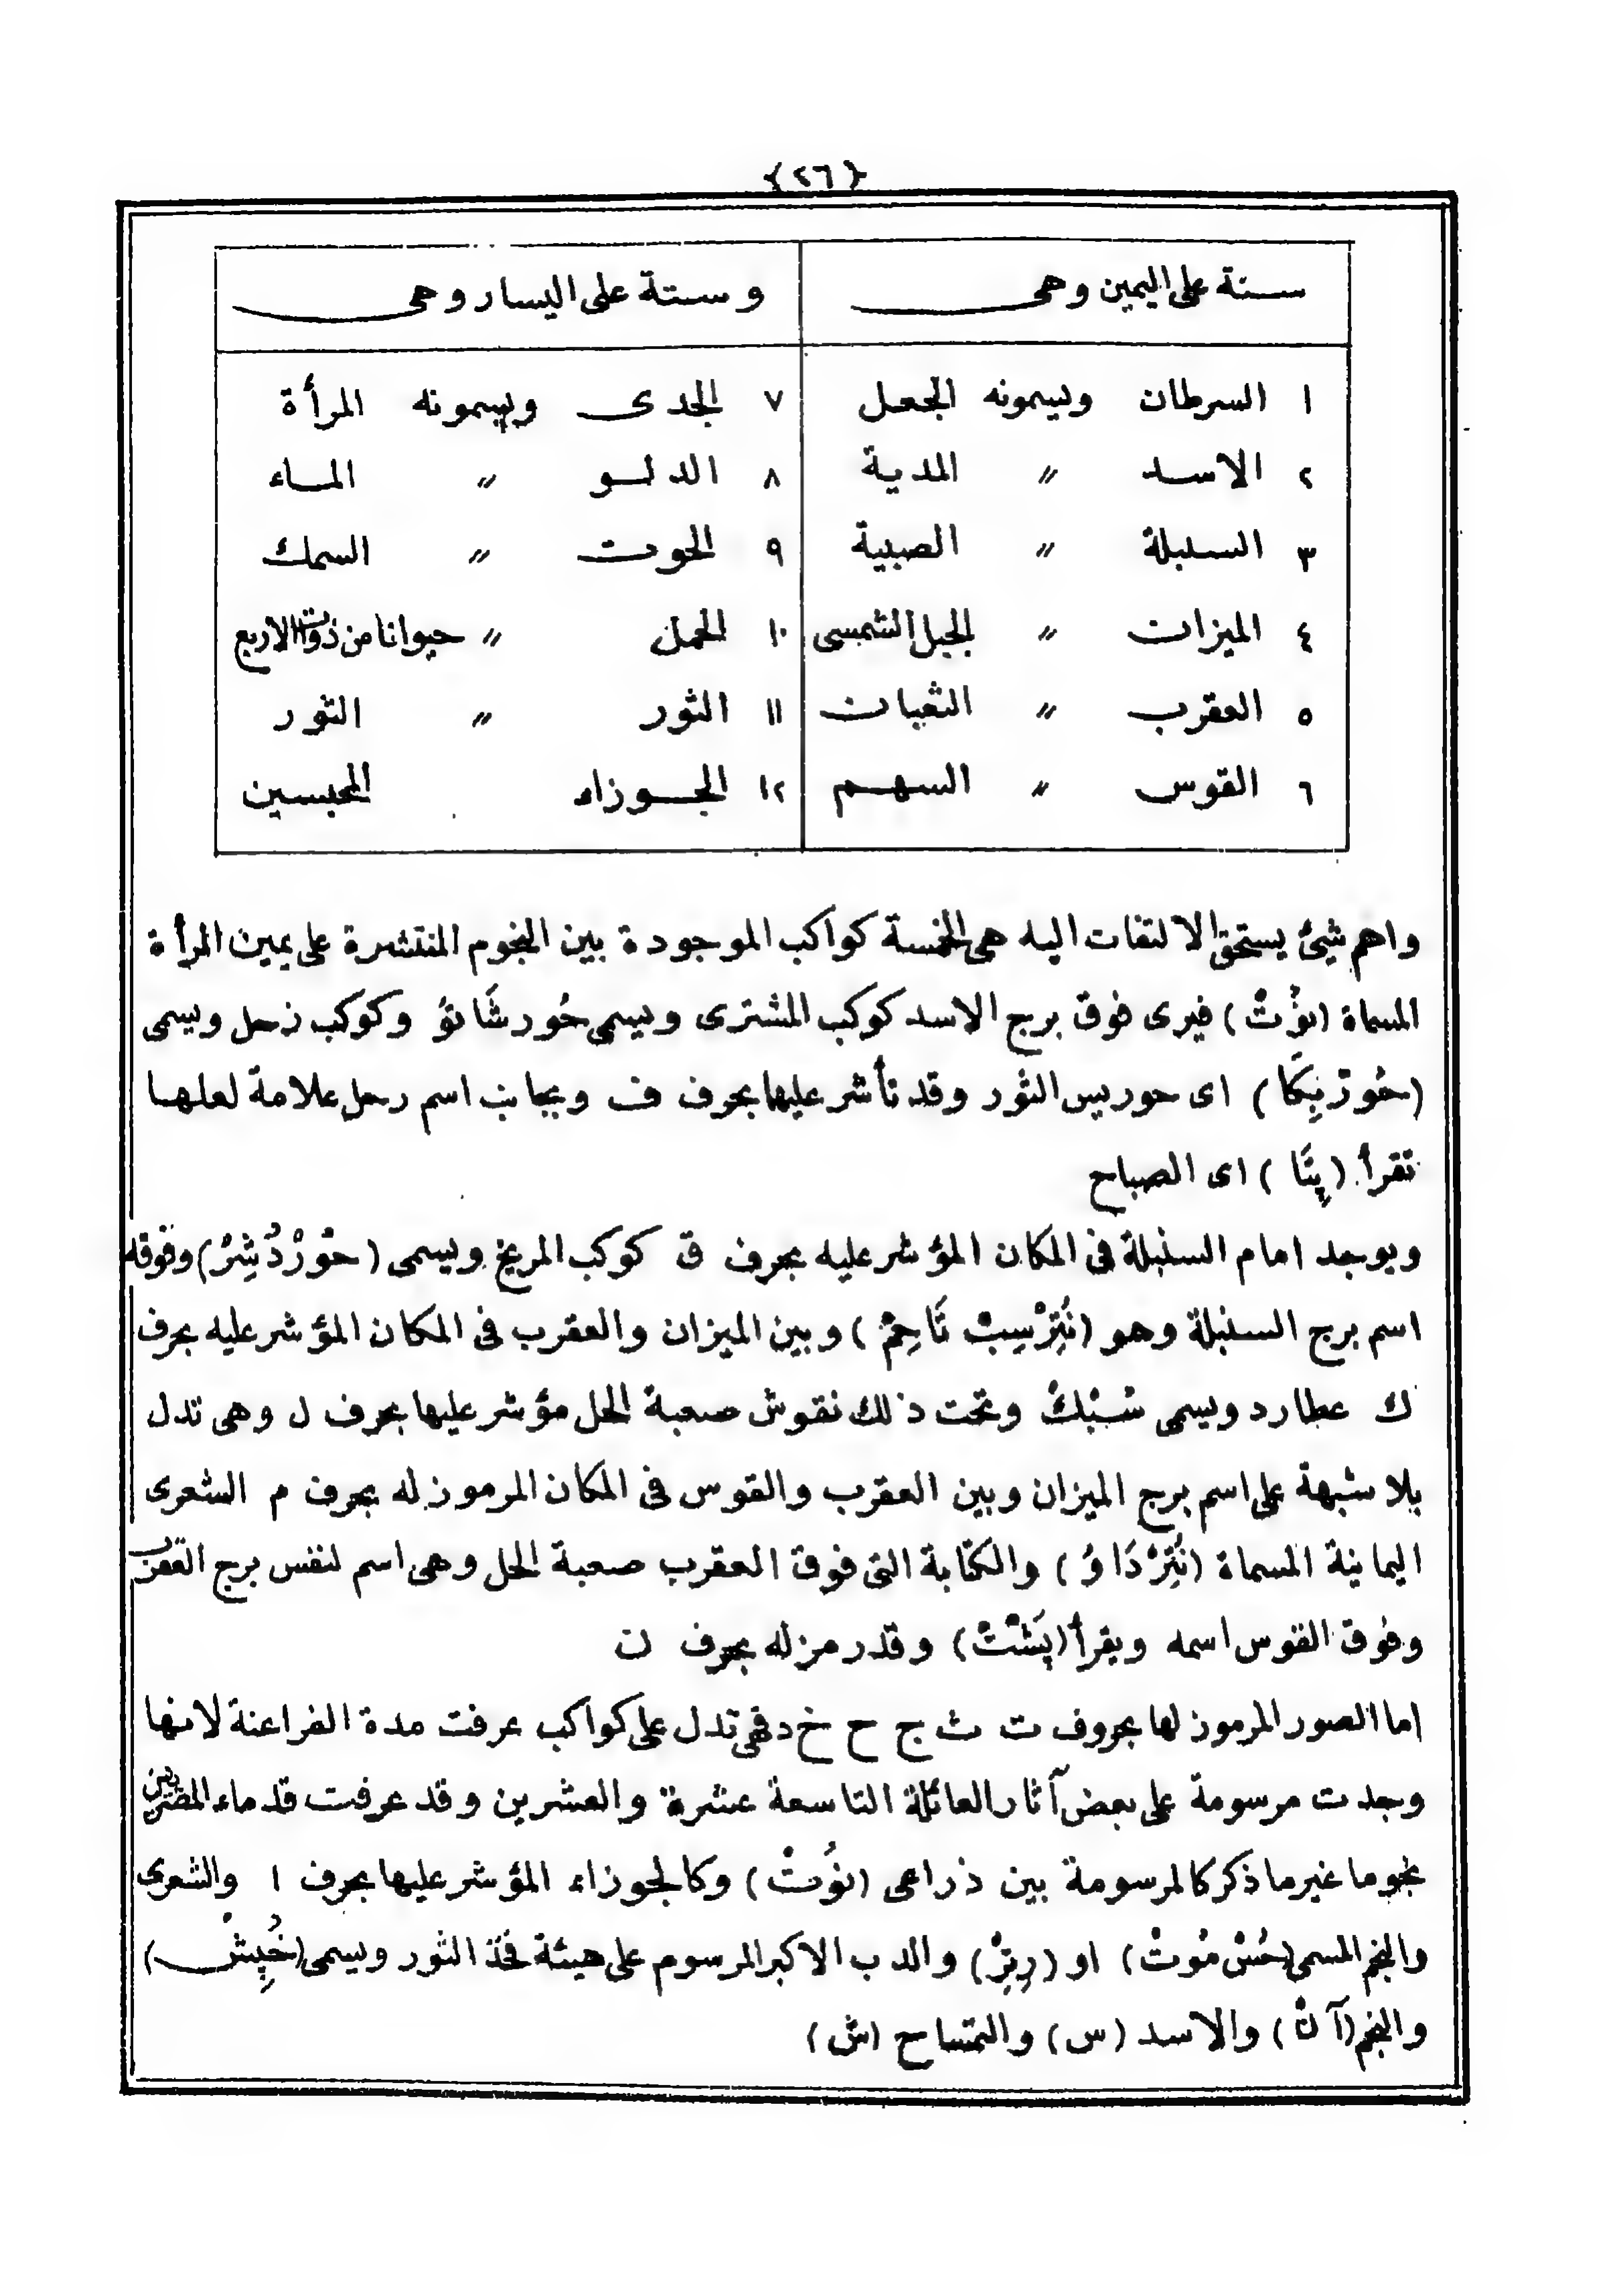 {٢٦}
ستة على اليمين وهى
١ السرطان ويسمونه الجعل
٢ الاسد 〃 المدية
٣ السنبلة 〃 الصبية
٤ الميزان 〃 الجبل الشمسى
٥ العقرب 〃 الثعبان
٦ القوس 〃 السهم
وستة على اليسار وهى
٧ الجدى ويسمونه المرأة
٨ الدلو 〃 الماء
٩ الحوت 〃 السمك
١٠ الحمل 〃 حيوانا من ذوات الاربع
١١ الثور 〃 الثور
١٢ الجوزاء المحبسين
واهم شيئ يستحق الالتفات اليه هى الخمسة كواكب الموجودة بين النجوم المنتشرة على يمين المرأة
المسماة (نُوتْ) فيرى فوق برج الاسد كوكب المشترى ويسمى حُورشَاتوُ وكوكب زحل ويسمى
(حُورْبِكَا) اى حوريس الثور وقد تأشر عليها بحرف ف وبجانب اسم زحل علامة لعلها
تقرأ (بِتَا) اى الصباح
ويوجد امام السنبلة فى المكان المؤشر عليه بحرف ق كوكب المريخ ويسمى (حُورْدُشِرْ) وفوقه
اسم برج السنبلة وهو (نُتِرْسِبْ تَاحِمْ) وبين الميزان والعقرب فى المكان المؤشر عليه بحرف
ك عطارد ويسمى سْبْكْ وتحت ذلك نقوش صعبة الحل مؤشر عليها بحرف ل وهى تدل
بلا شبهة على اسم برج الميزان وبين العقرب والقوس فى المكان المرموز له بحرف م الشعرى
اليمانية المسماة (نُتِرْدَاوُ) والكتابة التى فوق العقرب صعبة الحل وهى اسم لنفس برج العقرب
وفوق القوس اسمه ويقرأ (بَشْتْ) وقد رمز له بحرف ن
اما الصور المرموز لها بحروف ت ث ج ح خ د فهى تدل على كواكب عرفت مدة الفراعنة لانها
وجدت مرسومة على بعض آثار العائلة التاسعة عشرة والعشرين وقد عرفت قدماء المصريين
نجوما غير ما ذكر كالمرسومة بين ذراعى (نوُتْ) وكالجوزاء المؤشر عليها بحرف ا والشعرى
والنجم المسمى (حُسْ مُوتْ) او (رِتِرْ) والدب الاكبر المرسوم على هيئة فخذ الثور ويسمى (خُبِشْ)
والنجم (آنْ) والاسد (س) والتمساح (ش)